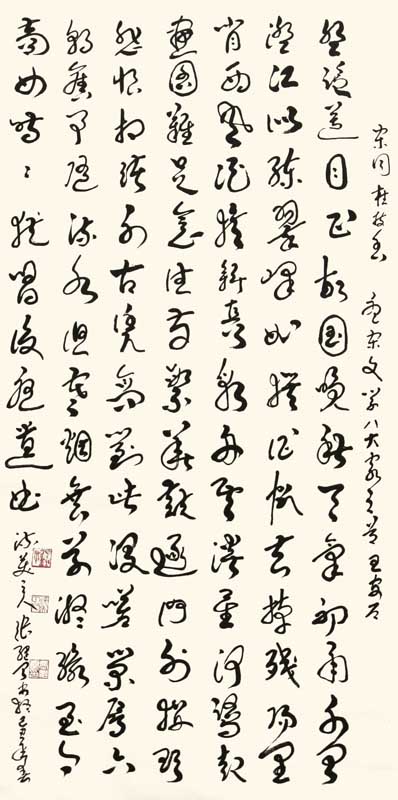 宋词 桂枝香 唐宋文学八大家之首 王安石
登临送目正故国晚秋天氣初肃千里
澄江似练翠峰如簇征帆去棹残阳里
背西风酒旗斜矗彩舟雲淡星河鹭起
画图難足念往昔繁華競逐门外楼头
悲恨相续千古凭高對此漫嗟榮辱六
朝舊事随流水但寒烟草凝绿至今
商女時〻猶唱後庭遗曲
之人 己丑年春